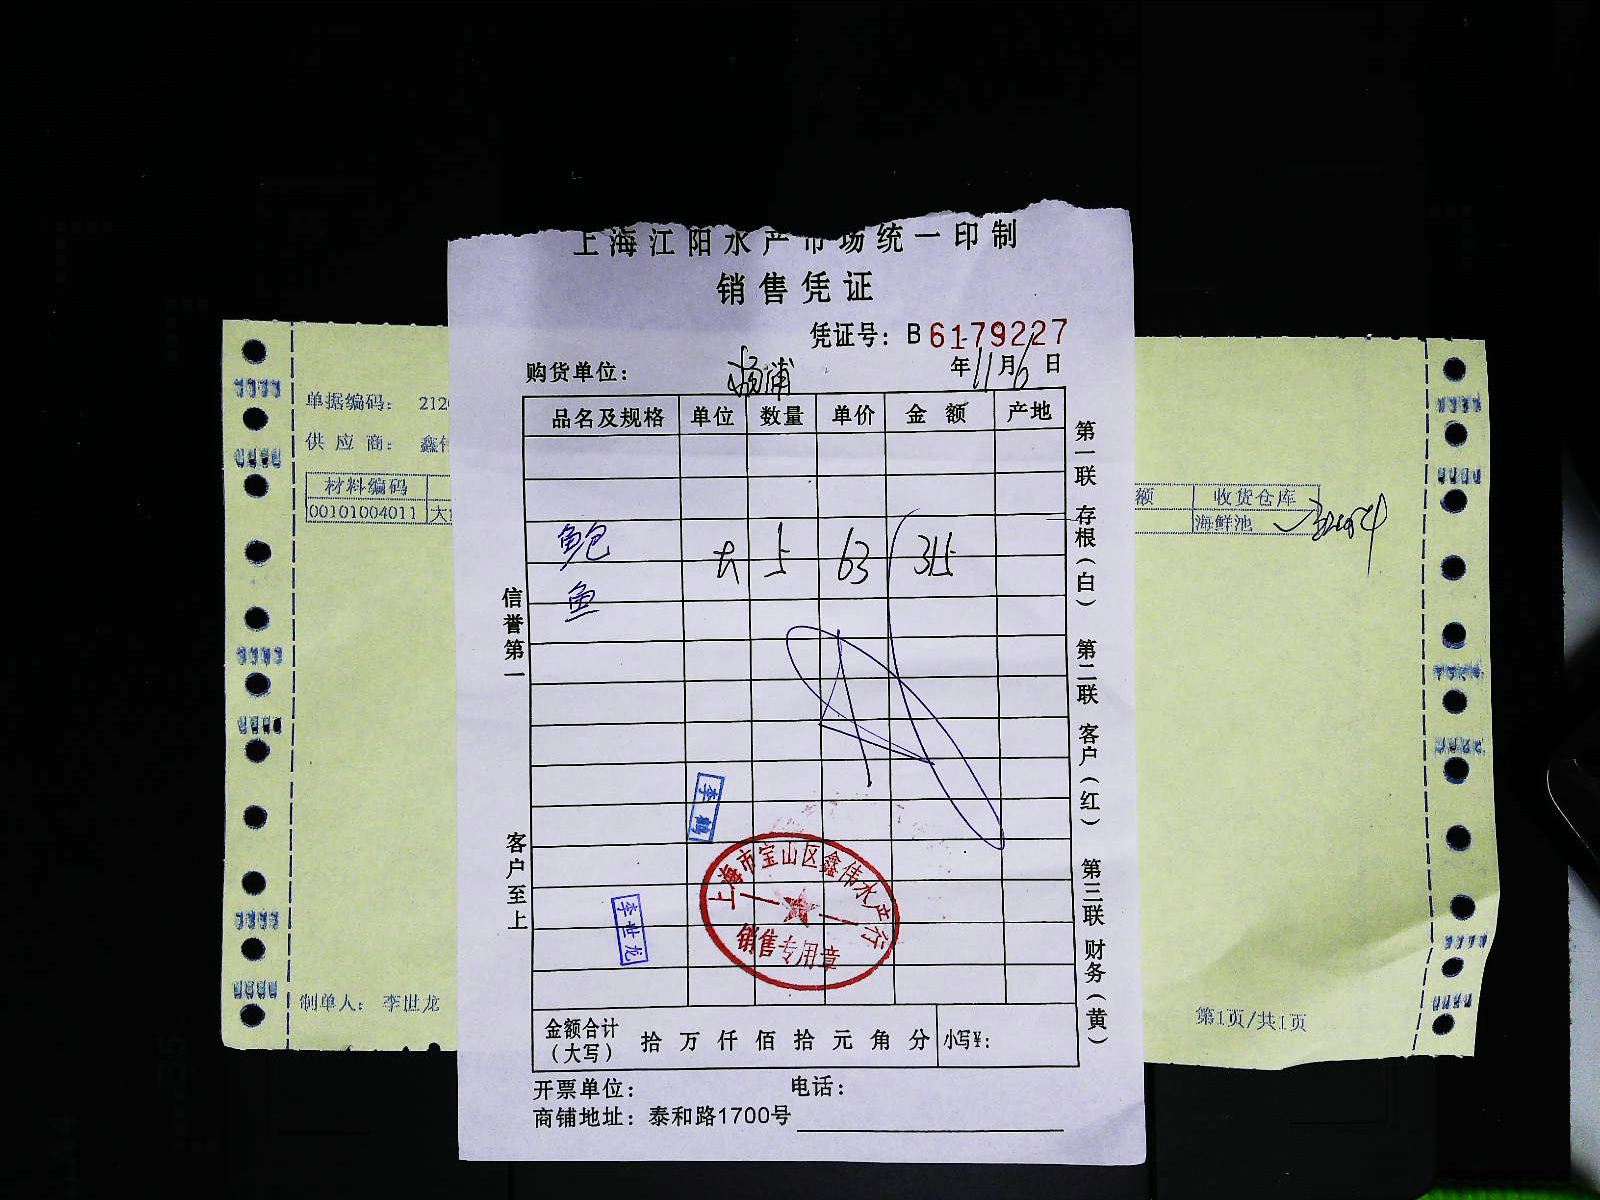 上海江阳水产市场统一印制
销售凭证
凭证号：B 6179227
购货单位：杨浦 年11月6日
品名及规格 单位 数量 单价 金额 产地
鲍鱼 大 5 63 315
信誉第一
客户至上
第一联 存根（白） 第二联 客户（红） 第三联 财务（黄）
李鹤
李世龙
上海市宝山区鑫伟水产行
销售专用章
金额合计（大写） 拾 万 仟 佰 拾 元 角 分 小写¥：
开票单位： 电话：
商铺地址：泰和路1700号
单据编码： 212
供应商： 鑫
材料编码
00101004011 大
额 收货仓库
海鲜池
制单人：李世龙
第1页/共1页